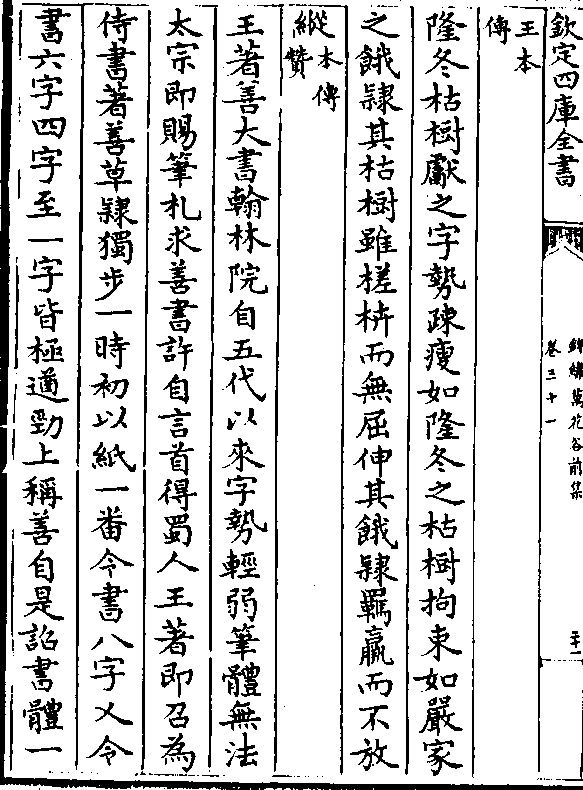 欽定四庫全書
錦繡萬花谷前集
卷三十一
二十二
王本
傳
隆冬枯樹獻之字勢疎瘦如隆冬之枯樹拘束如嚴家
之餓隸其枯樹雖槎枿而無屈伸其餓隸羈羸而不放
縱本傳
贊
王著善大書翰林院自五代以來字勢輕弱筆體無法
太宗即賜筆札求善書許自言首得蜀人王著即召為
侍書著善草隸獨步一時初以紙一番令書八字乂令
書六字四字至一字皆極遒勁上稱善自是詔書體一